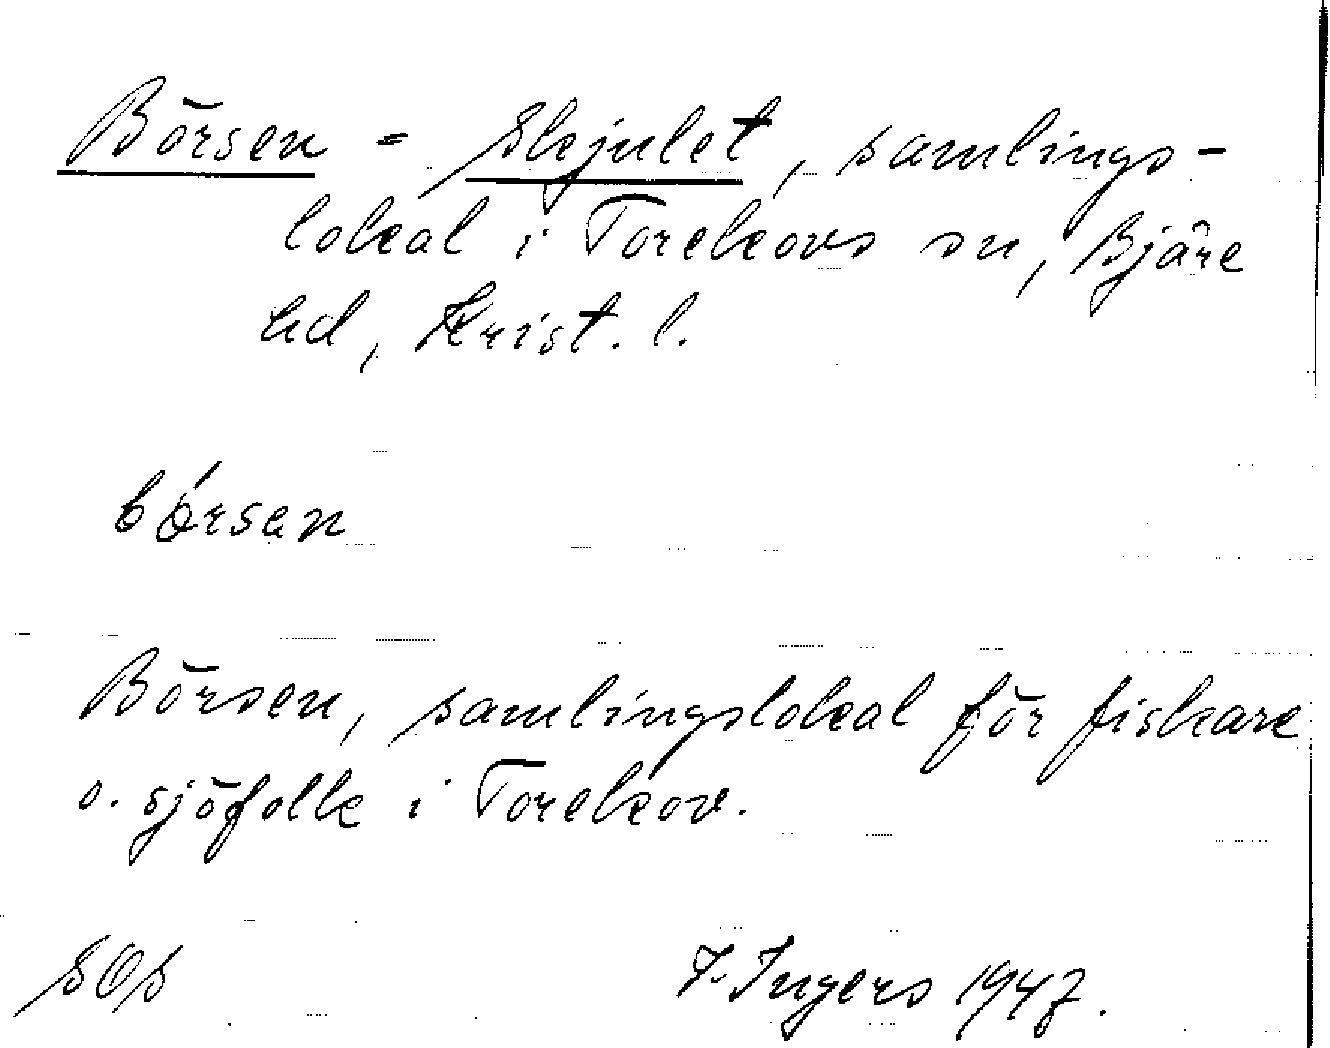 Börsen = Skjulet, samlings-
lokal i Torekovs sn, Bjäre
hd, Krist. l.
bórsan
Börsen, samlingslokal för fiskare
o. sjöfolk i Torekov.
SOS
I. Ingers 1947.